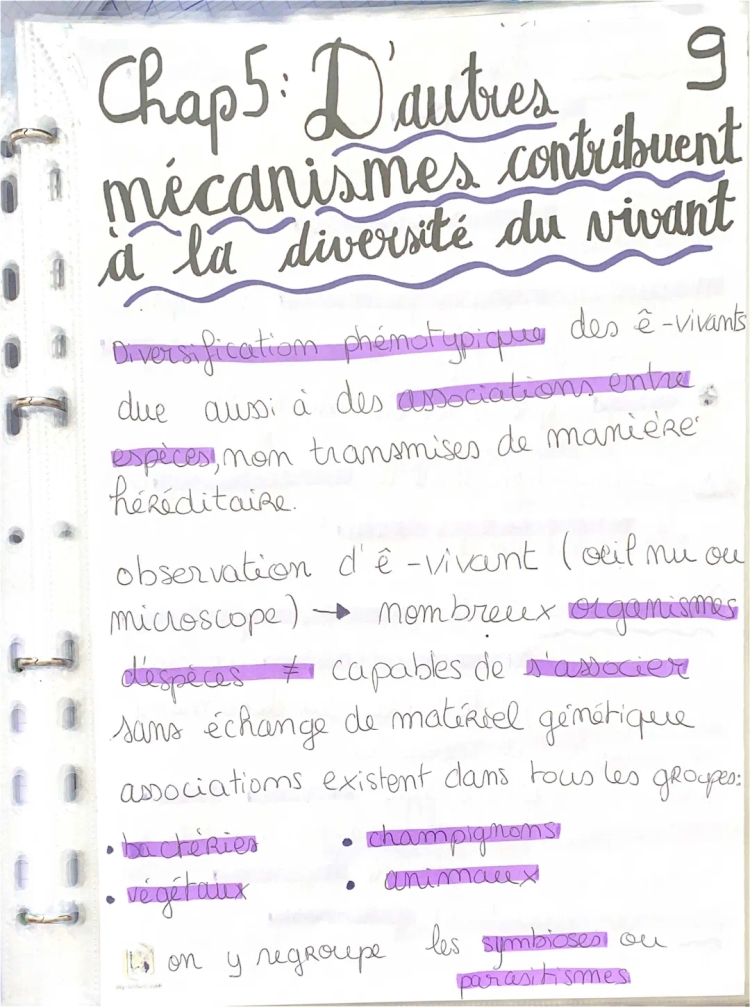 9
Chap 5: D'autres
mécanismes contribuent
à la diversité du vivant
Diversification phénotypique des ê-vivants
due aussi à des associations entre
espèces, non transmises de manière
héréditaire.
observation d'ê-vivant (oeil nu ou
microscope) → nombreux organismes
d'espèces ≠ capables de s'associer
sans échange de matériel génétique
associations existent dans tous les groupes:
• bactéries • champignons
• végétaux • animaux
↳ on y regroupe les symbioses ou
parasitismes